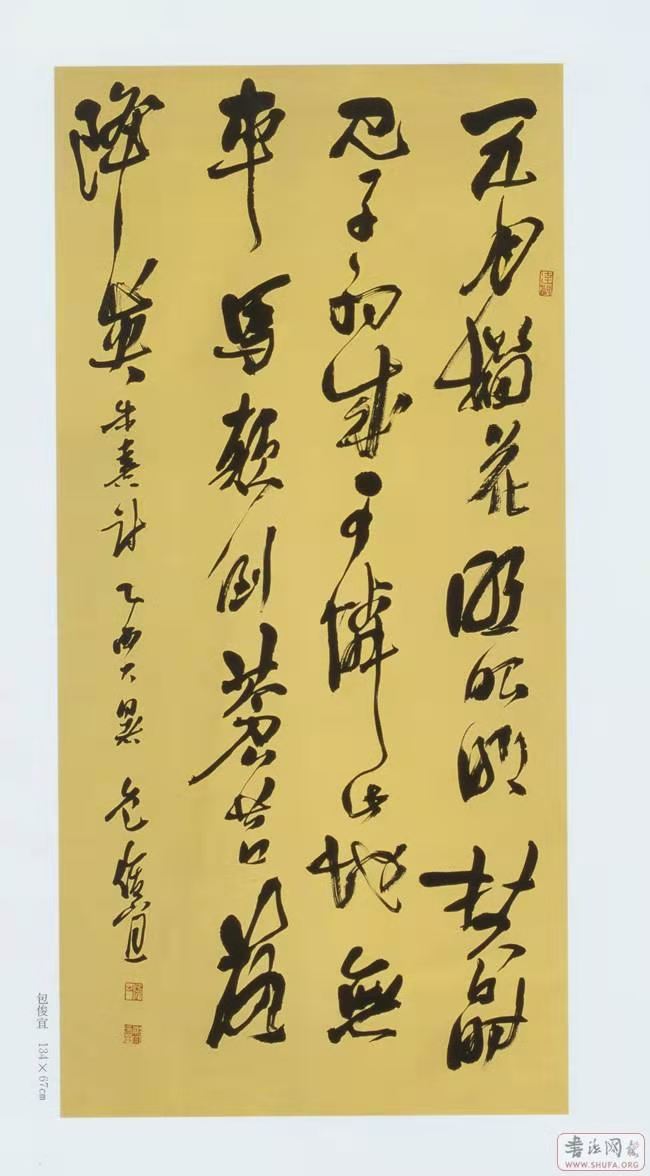 五月榴花照眼明枝間時
見子初成可憐此地無
車馬顛倒蒼苔落
降英 朱熹詩 乙酉大暑 包俊宜
包俊宜 134×67cm
书法网
WWW.SHUFA.ORG